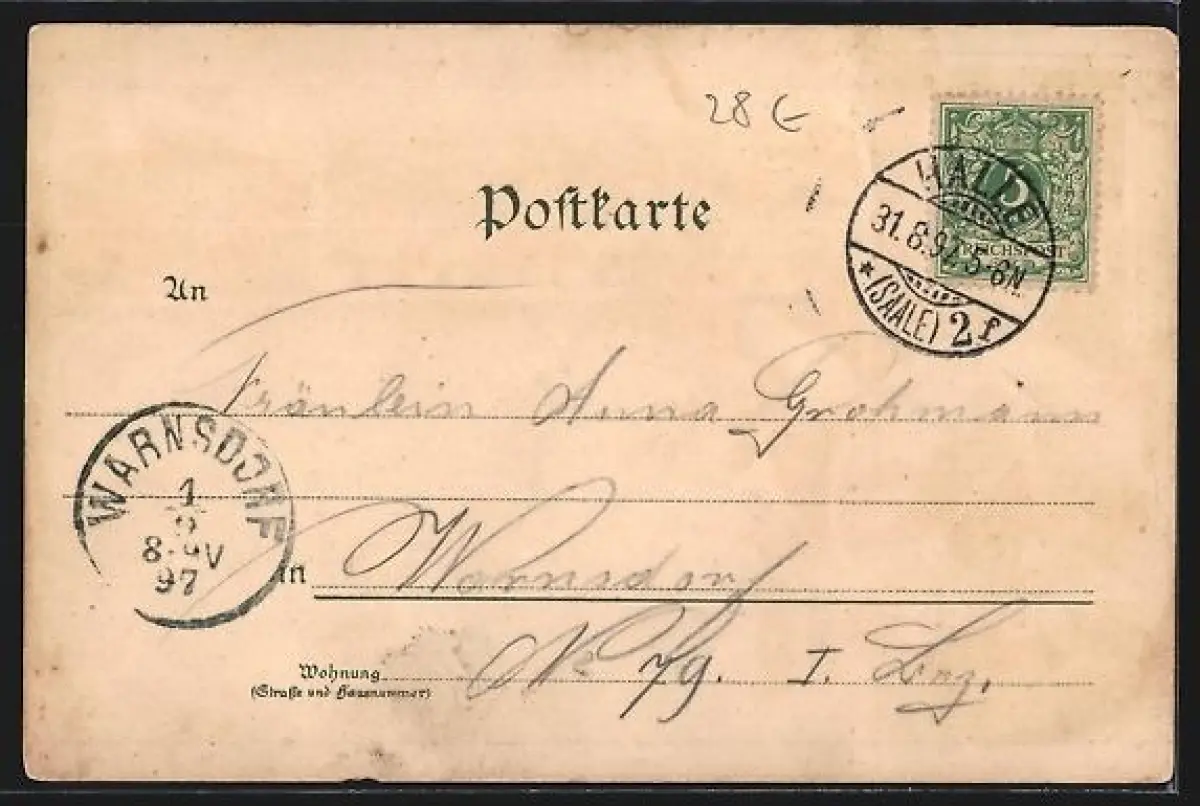 28 €
Postkarte
5
REICHSPOST
HALLE
31.8.97. 5-6N.
* (SAALE) 2f
An
Fräulein Anna Grohmann
WARNSDORF
1
9
8-9V
97
in Warnsdorf
Wohnung
(Straße und Hausnummer)
No 79. I. Bez.